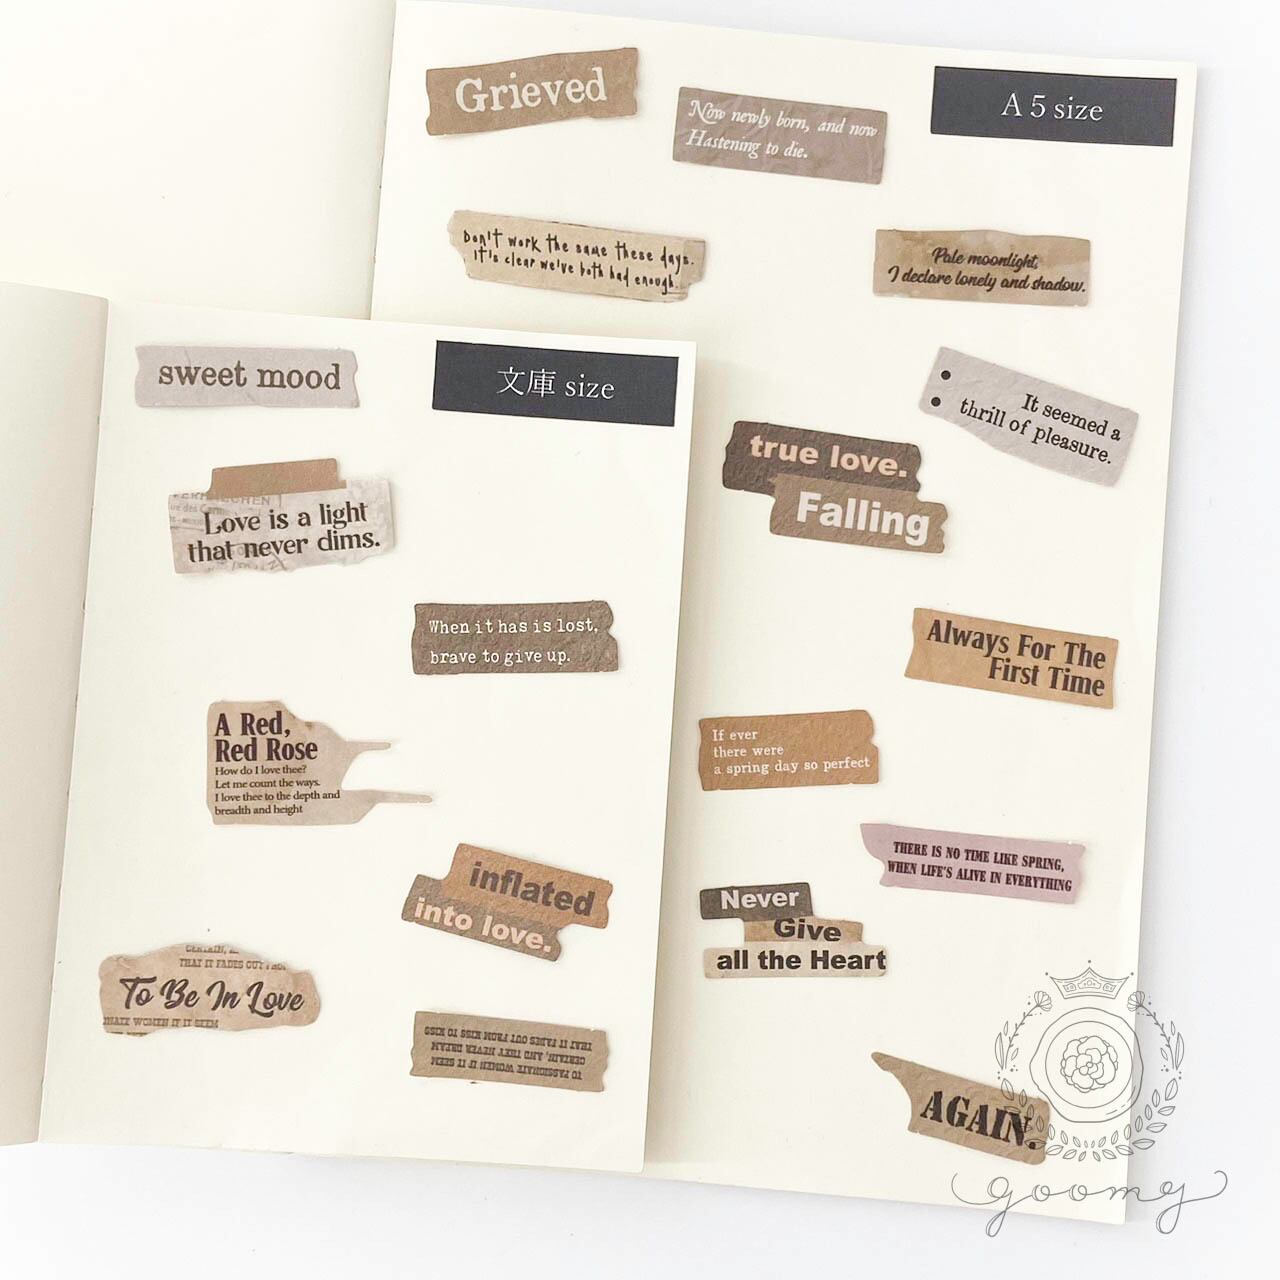 Grieved
Now newly born, and now
Hastening to die.
A 5 size
Don't work the same these days.
it's clear we've both had enough.
Pale moonlight,
I declare lonely and shadow.
It seemed a
thrill of pleasure.
true love.
Falling
Always For The
First Time
If ever
there were
a spring day so perfect
THERE IS NO TIME LIKE SPRING,
WHEN LIFE'S ALIVE IN EVERYTHING
Never
Give
all the Heart
AGAIN.
sweet mood
文庫 size
Love is a light
that never dims.
When it has is lost,
brave to give up.
A Red,
Red Rose
How do I love thee?
Let me count the ways.
I love thee to the depth and
breadth and height
inflated
into love.
THAT IT FADES OUT
To Be In Love
WOMEN IF IT SEEM
TO PASSIONATE WOMEN IF IT SEEM
CERTAIN, AND THEY NEVER DREAM
THAT IT FADES OUT FROM KISS TO KISS
goomy